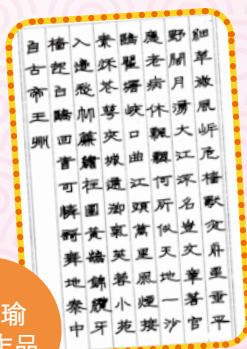 細草微風岸危檣獨夜舟星垂平
野闊月湧大江流名豈文章著官
應老病休飄飄何所似天地一沙
鷗瞿塘峽口曲江頭萬里風煙接
素秋花萼夾城通御氣芙蓉小苑
入邊愁珠簾繡柱圍黃鵠錦纜牙
檣起白鷗回首可憐歌舞地秦中
自古帝王州
瑜
作品